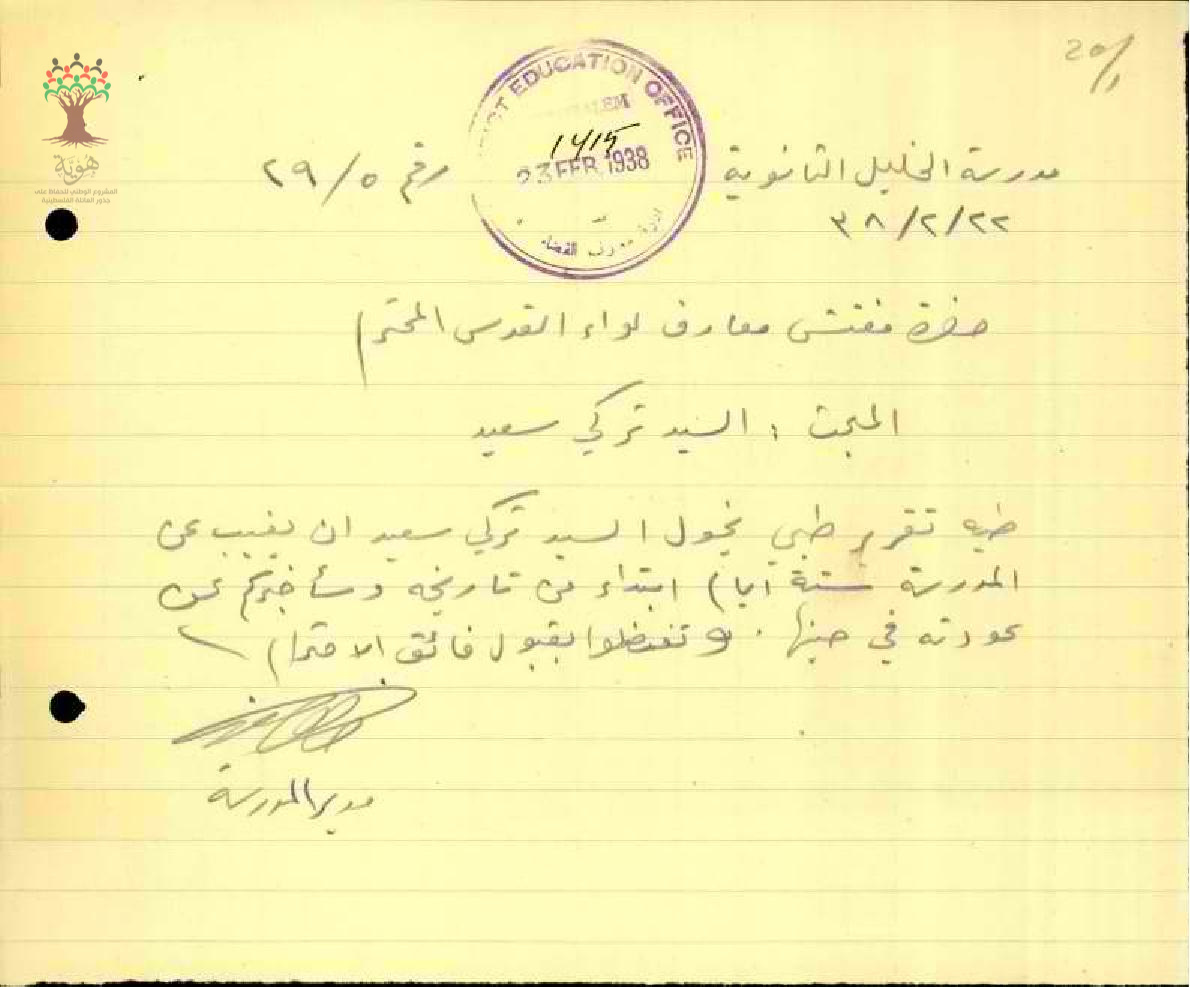 20/1
هوية
المشروع الوطني للحفاظ على
جذور العائلة الفلسطينية
DISTRICT EDUCATION OFFICE
JERUSALEM
1415
23 FEB 1938
مدرسة الخليل الثانوية
رقم ٢٩/٥
٣٨/٢/٢٢
حضرة مفتش معارف لواء القدس المحترم
المبحث : السيد تركي سعيد
طيه تقرير طبي يخول السيد تركي سعيد ان يغيب عن
المدرسة ستة أيام ابتداء من تاريخه وسأخبركم عن
عودته في حينها . وتفضلوا بقبول فائق الاحترام
مدير المدرسة